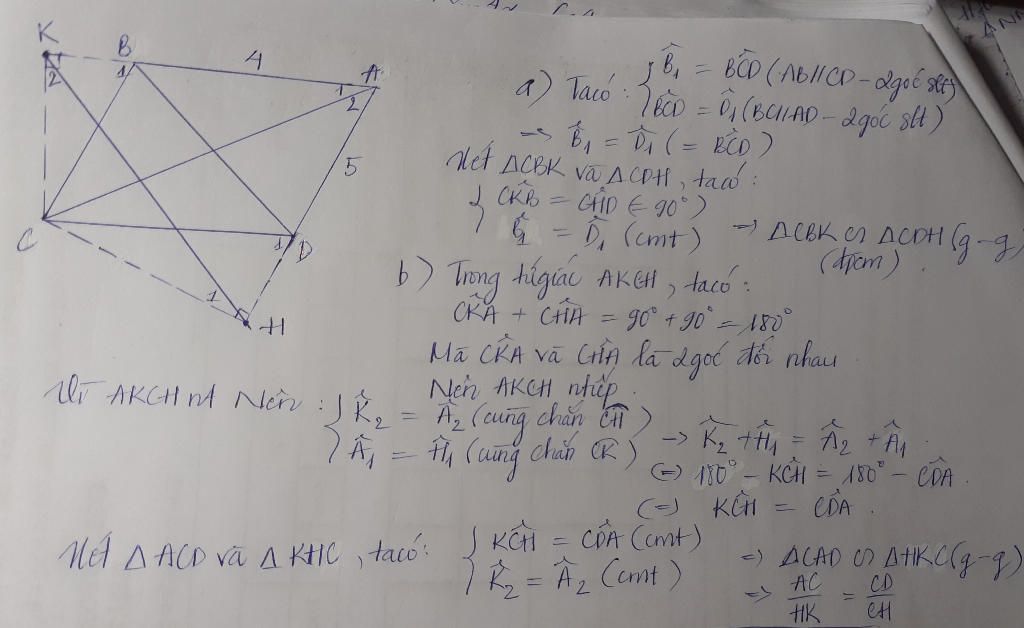 K
B
4
A
1
1
2
2
5
C
1
D
1
H
a) Ta có : { B̂₁ = BĈD (AB//CD - 2 góc slt)
BĈD = D̂₁ (BC//AD - 2 góc slt)
=> B̂₁ = D̂₁ (= BĈD)
Xét ΔCBK và ΔCDH, ta có :
{ CK̂B = CĤD (= 90°)
B̂₁ = D̂₁ (cmt) => ΔCBK ∽ ΔCDH (g-g)
(đpcm)
b) Trong tứ giác AKCH, ta có :
CK̂A + CĤA = 90° + 90° = 180°
Mà CK̂A và CĤA là 2 góc đối nhau
Nên AKCH nt tiếp.
Vì AKCH nt Nên : { K̂₂ = Â₂ (cùng chắn CH)
Â₁ = Ĥ₁ (cùng chắn CK) => K̂₂ + Ĥ₁ = Â₂ + Â₁
(=) 180° - KĈH = 180° - CD̂A.
(=) KĈH = CD̂A.
Xét ΔACD và ΔKHC, ta có: { KĈH = CD̂A (cmt)
K̂₂ = Â₂ (cmt) => ΔCAD ∽ ΔHKC (g-g)
=> AC/HK = CD/CH